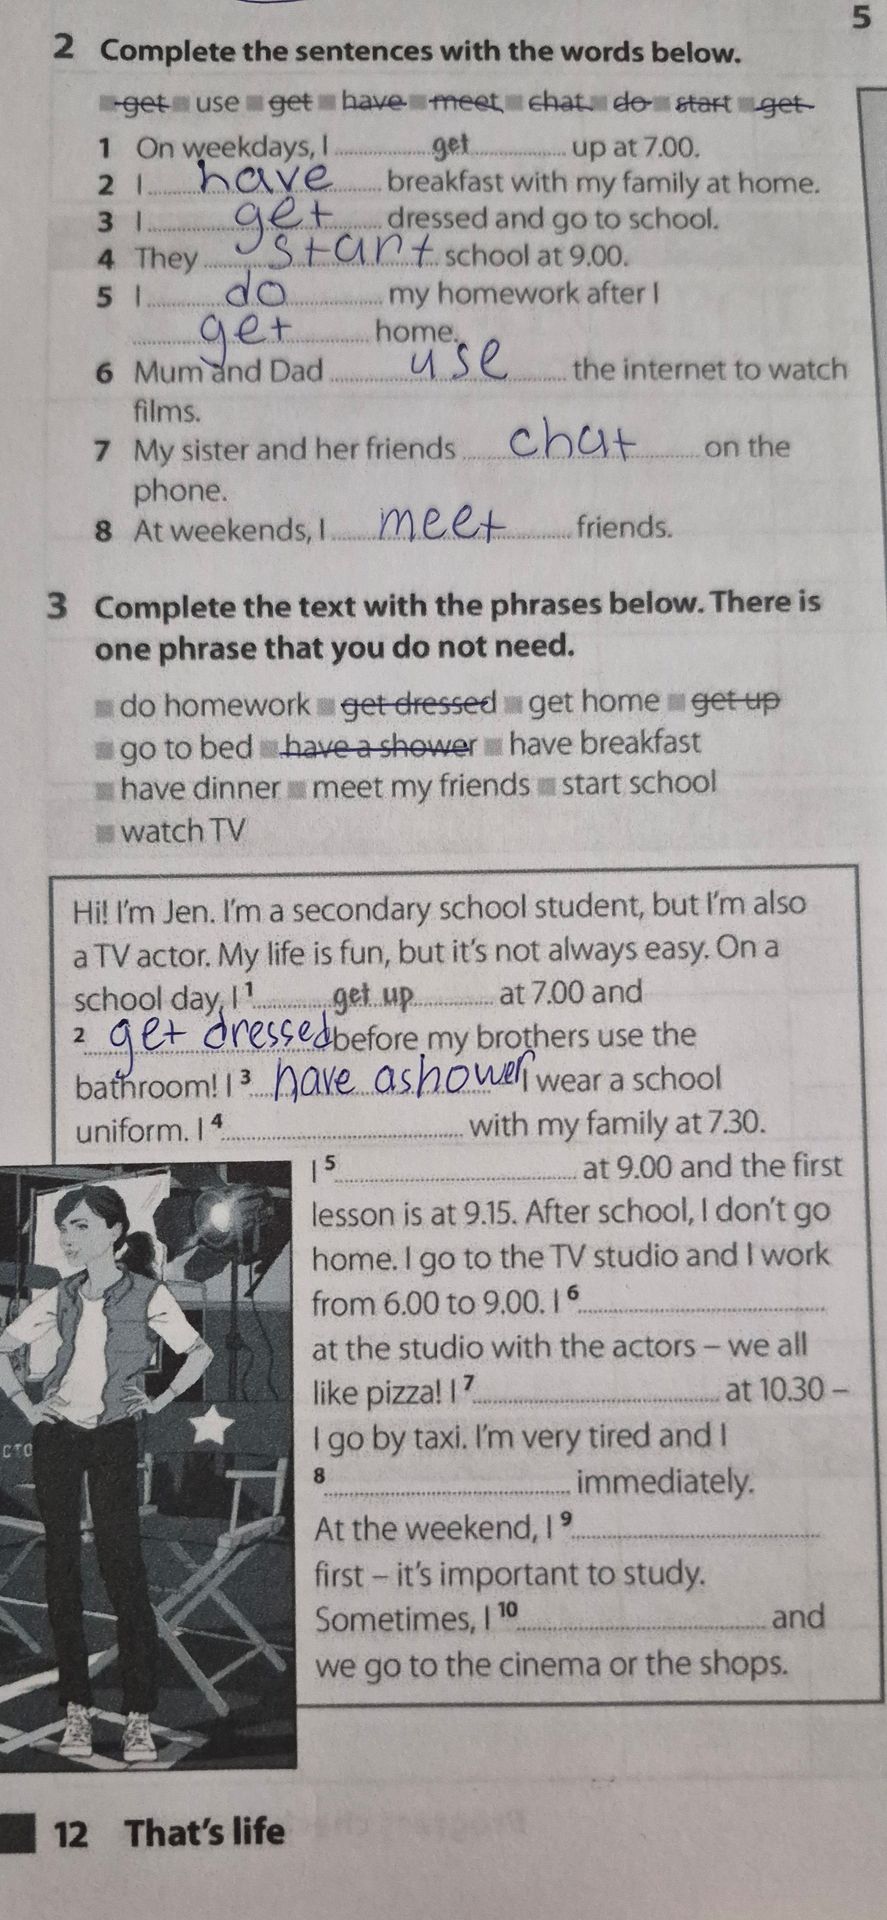 5
2 Complete the sentences with the words below.
get use get have meet chat do start get
1 On weekdays, I get up at 7.00.
2 I have breakfast with my family at home.
3 I get dressed and go to school.
4 They start school at 9.00.
5 I do my homework after I
get home.
6 Mum and Dad use the internet to watch
films.
7 My sister and her friends chat on the
phone.
8 At weekends, I meet friends.
3 Complete the text with the phrases below. There is
one phrase that you do not need.
do homework get dressed get home get up
go to bed have a shower have breakfast
have dinner meet my friends start school
watch TV
Hi! I'm Jen. I'm a secondary school student, but I'm also
a TV actor. My life is fun, but it's not always easy. On a
school day, I 1 get up at 7.00 and
2 get dressed before my brothers use the
bathroom! I 3 have a shower I wear a school
uniform. I 4 with my family at 7.30.
I 5 at 9.00 and the first
lesson is at 9.15. After school, I don't go
home. I go to the TV studio and I work
from 6.00 to 9.00. I 6
at the studio with the actors – we all
like pizza! I 7 at 10.30 –
I go by taxi. I'm very tired and I
8 immediately.
At the weekend, I 9
first – it's important to study.
Sometimes, I 10 and
we go to the cinema or the shops.
CTO
12 That's life